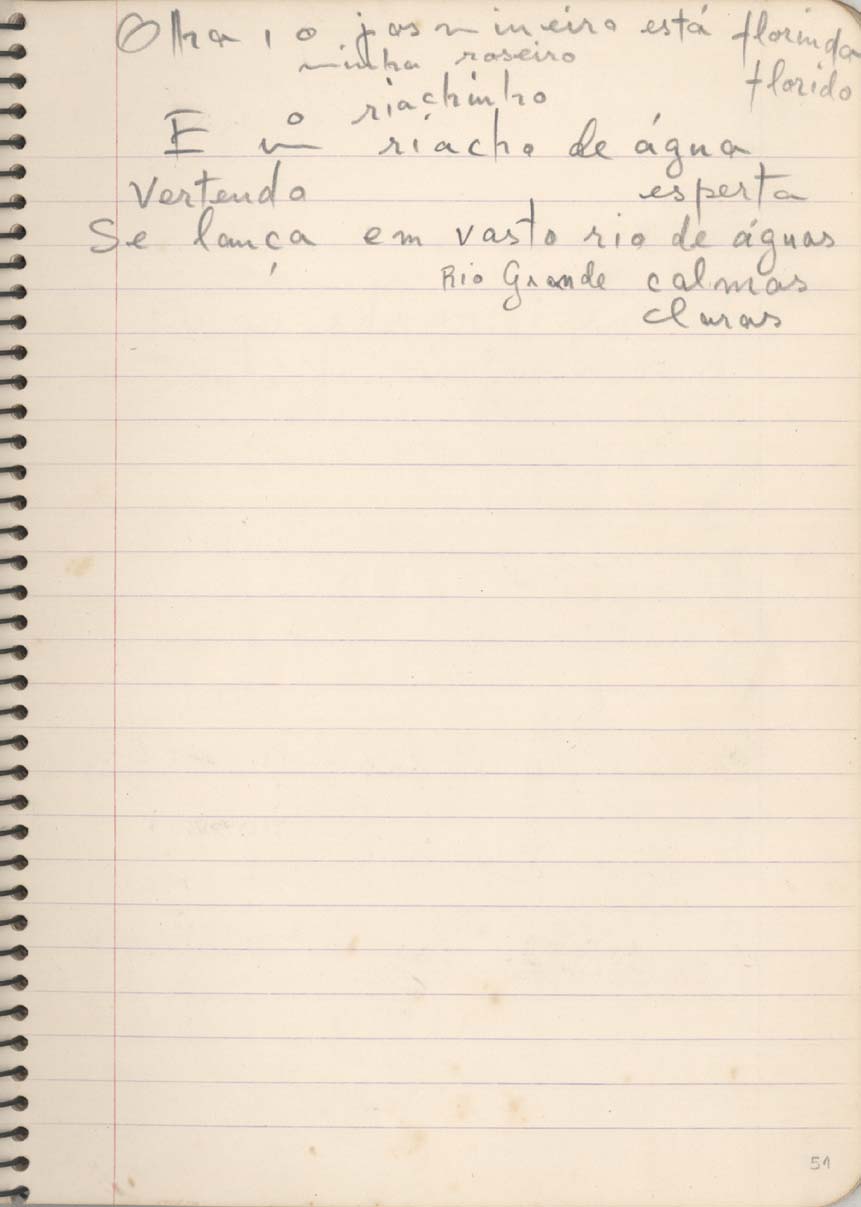 Olha, o jasmineiro está florindo
minha roseiro florido
riachinho
E um o riacho de água
Vertendo esperta
Se lança em vasto rio de águas
Rio Grande calmas
claras
51